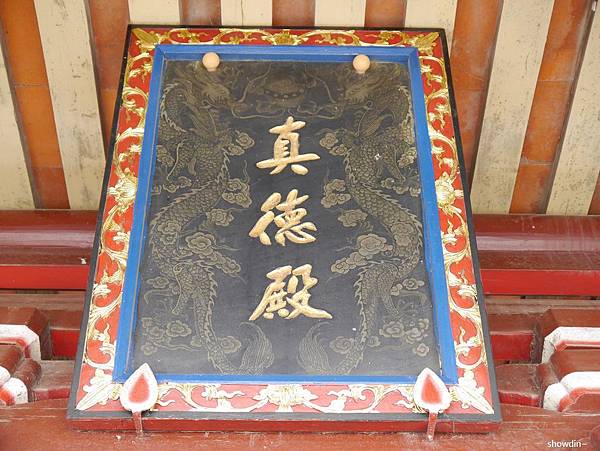 真德殿
showdin~